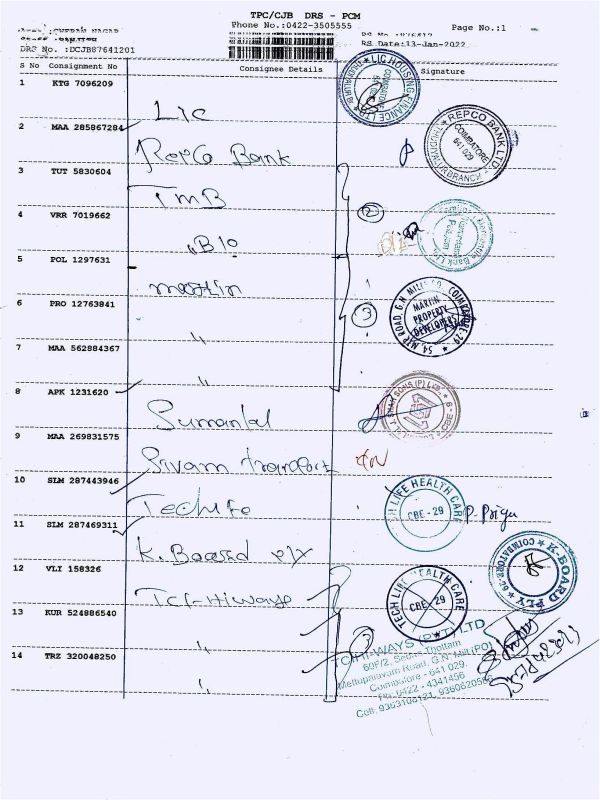 TPC/CJB DRS - PCM
Phone No.:0422-3505555
Page No.:1
DRS No. :DCJB87641201
RS Date:13-Jan-2022
S No Consignment No Consignee Details Signature
1 KTG 7096209 LIC
LIC HOUSING FINANCE LTD
2 MAA 285867284 Repco Bank
REPCO BANK LTD
COIMBATORE
641 029
BRANCH
3 TUT 5830604 TMB
2
4 VRR 7019662
5 POL 1297631 martin
6 PRO 12763841 "
3
MARTIN
PROPERTY
DEVELOPERS
54, MTP ROAD, G.N MILLS PO, COIMBATORE-29
7 MAA 562884367 "
8 APK 1231620 Sumanlal
9 MAA 269831575 Sivam transport
10 SLM 287443946 Techlife
LIFE HEALTH CARE
CBE - 29
P. Priya
11 SLM 287469311 K. Board ply
K-BOARD PLY
COIMBATORE-29
12 VLI 158326 Tci-Hiways
TECH LIFE HEALTH CARE
CBE - 29
13 KUR 524886540 "
3
14 TRZ 320048250 "
HI-WAYS (P) LTD
60F/2, Thottam
Mettupalayam Road, G.N. Mill (PO)
Coimbatore - 641 029.
Ph: 0422 - 4341456